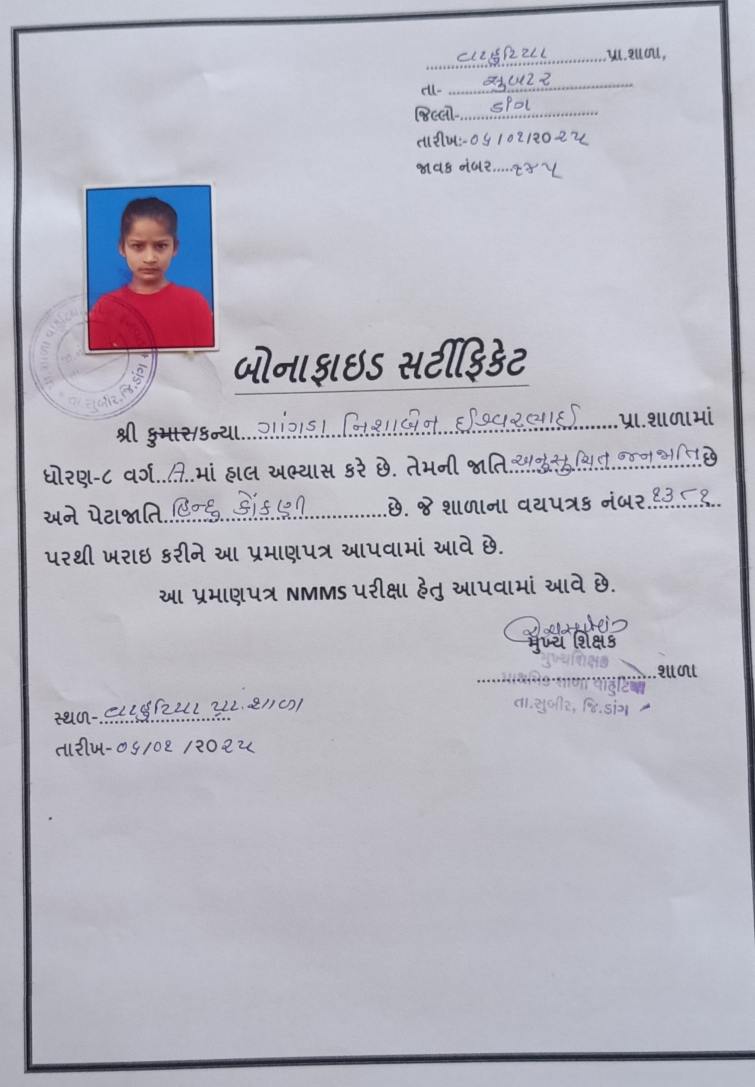 વાહુટિયા પ્રા.શાળા,
તા- સુબીર
જિલ્લો- ડાંગ
તારીખ:-૦૬/૦૧/૨૦૨૫
જાવક નંબર.....
બોનાફાઇડ સર્ટીફિકેટ
શ્રી કુમાર/કન્યા ગાંગડા નિશાબેન ઈશ્વરભાઈ પ્રા.શાળામાં
ધોરણ-૮ વર્ગ..A..માં હાલ અભ્યાસ કરે છે. તેમની જાતિ અનુસુચિત જનજાતિ છે
અને પેટાજાતિ હિન્દુ કોંકણી છે. જે શાળાના વયપત્રક નંબર ૧૩૮૧
પરથી ખરાઇ કરીને આ પ્રમાણપત્ર આપવામાં આવે છે.
આ પ્રમાણપત્ર NMMS પરીક્ષા હેતુ આપવામાં આવે છે.
મુખ્ય શિક્ષક
મુખ્યશિક્ષક
શાળા
પ્રાથમિક શાળા વાહુટિયા
તા.સુબીર, જિ.ડાંગ
સ્થળ- વાહુટિયા પ્રા.શાળા
તારીખ-૦૬/૦૧/૨૦૨૫
તા.સુબીર, જિ.ડાંગ